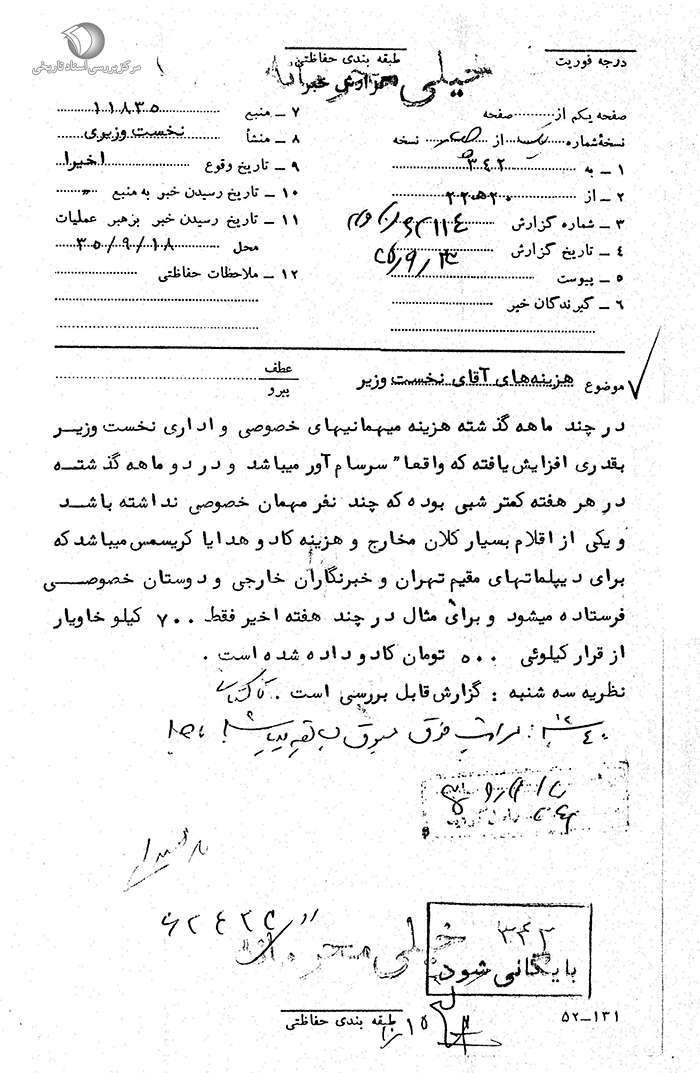 مرکز بررسی اسناد تاریخی
درجه فوریت
طبقه بندی حفاظتی
خیلی محرمانه
گزارش خبر
صفحه یکم از صفحه
نسخه شماره یک از نسخه
۱ ـ به ۳۴۲
۲ ـ از ۲۰ ه‍ ۲۲
۳ ـ شماره گزارش
۴ ـ تاریخ گزارش
۵ ـ پیوست
۶ ـ گیرندگان خبر
۷ ـ منبع ۱۱۸۳۵
۸ ـ منشأ نخست وزیری
۹ ـ تاریخ وقوع اخیرا
۱۰ ـ تاریخ رسیدن خبر به منبع "
۱۱ ـ تاریخ رسیدن خبر برهبر عملیات
محل ۳۵/۹/۱۸
۱۲ ـ ملاحظات حفاظتی
موضوع هزینه‌های آقای نخست وزیر
عطف
پیرو
در چند ماهه گذشته هزینه میهمانیهای خصوصی و اداری نخست وزیر
بقدری افزایش یافته که واقعا" سرسام آور میباشد و در دو ماهه گذشته
در هر هفته کمتر شبی بوده که چند نفر مهمان خصوصی نداشته باشد
و یکی از اقلام بسیار کلان مخارج و هزینه کادو هدایا کریسمس میباشد که
برای دیپلماتهای مقیم تهران و خبرنگاران خارجی و دوستان خصوصی
فرستاده میشود و برای مثال در چند هفته اخیر فقط ۷۰۰ کیلو خاویار
از قرار کیلوئی ۵۰۰ تومان کادو داده شده است .
نظریه سه شنبه : گزارش قابل بررسی است .
۳۴۲
بایگانی شود
خیلی محرمانه
طبقه بندی حفاظتی
۵۲ـ۱۳۱